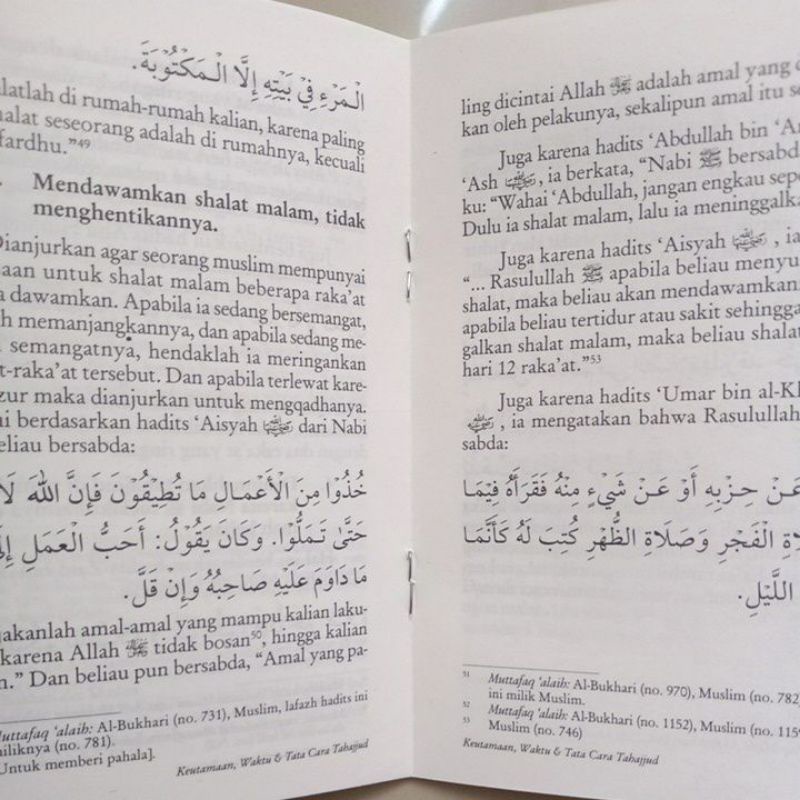 الْمَرْءِ فِيْ بَيْتِهِ إِلَّا الْمَكْتُوْبَةَ.
di rumah-rumah kalian, karena paling
seseorang adalah di rumahnya, kecuali
fardhu.”⁴⁹
Mendawamkan shalat malam, tidak
menghentikannya.
Dianjurkan agar seorang muslim mempunyai
untuk shalat malam beberapa raka’at
dawamkan. Apabila ia sedang bersemangat,
memanjangkannya, dan apabila sedang me-
semangatnya, hendaklah ia meringankan
tersebut. Dan apabila terlewat kare-
maka dianjurkan untuk mengqadhanya.
berdasarkan hadits ‘Aisyah رضي الله عنها dari Nabi
beliau bersabda:
خُذُوْا مِنَ الْأَعْمَالِ مَا تُطِيْقُوْنَ فَإِنَّ اللهَ لَا
حَتَّى تَمَلُّوْا. وَكَانَ يَقُوْلُ: أَحَبُّ الْعَمَلِ
مَا دَاوَمَ عَلَيْهِ صَاحِبُهُ وَإِنْ قَلَّ.
amal-amal yang mampu kalian laku-
karena Allah ﷻ tidak bosan⁵⁰, hingga kalian
Dan beliau pun bersabda, “Amal yang pa-
Muttafaq ‘alaih: Al-Bukhari (no. 731), Muslim, lafazh hadits ini
miliknya (no. 781).
Untuk memberi pahala].
Keutamaan, Waktu & Tata Cara Tahajjud
ling dicintai Allah ﷻ adalah amal yang
kan oleh pelakunya, sekalipun amal itu
Juga karena hadits ‘Abdullah bin
‘Ash رضي الله عنهما, ia berkata, “Nabi ﷺ
ku: “Wahai ‘Abdullah, jangan engkau
Dulu ia shalat malam, lalu ia
Juga karena hadits ‘Aisyah رضي الله عنها, ia
“... Rasulullah ﷺ apabila beliau
shalat, maka beliau akan
apabila beliau tertidur atau sakit sehingga
galkan shalat malam, maka beliau shalat
hari 12 raka’at.”⁵³
Juga karena hadits ‘Umar bin
رضي الله عنه, ia mengatakan bahwa Rasulullah
sabda:
عَنْ حِزْبِهِ أَوْ عَنْ شَيْءٍ مِنْهُ فَقَرَأَهُ فِيْمَا
الْفَجْرِ وَصَلَاةِ الظُّهْرِ كُتِبَ لَهُ كَأَنَّمَا
اللَّيْلِ.
⁵¹ Muttafaq ‘alaih: Al-Bukhari (no. 970), Muslim (no. 782)
ini milik Muslim.
⁵² Muttafaq ‘alaih: Al-Bukhari (no. 1152), Muslim (no.
⁵³ Muslim (no. 746)
Keutamaan, Waktu & Tata Cara Tahajjud